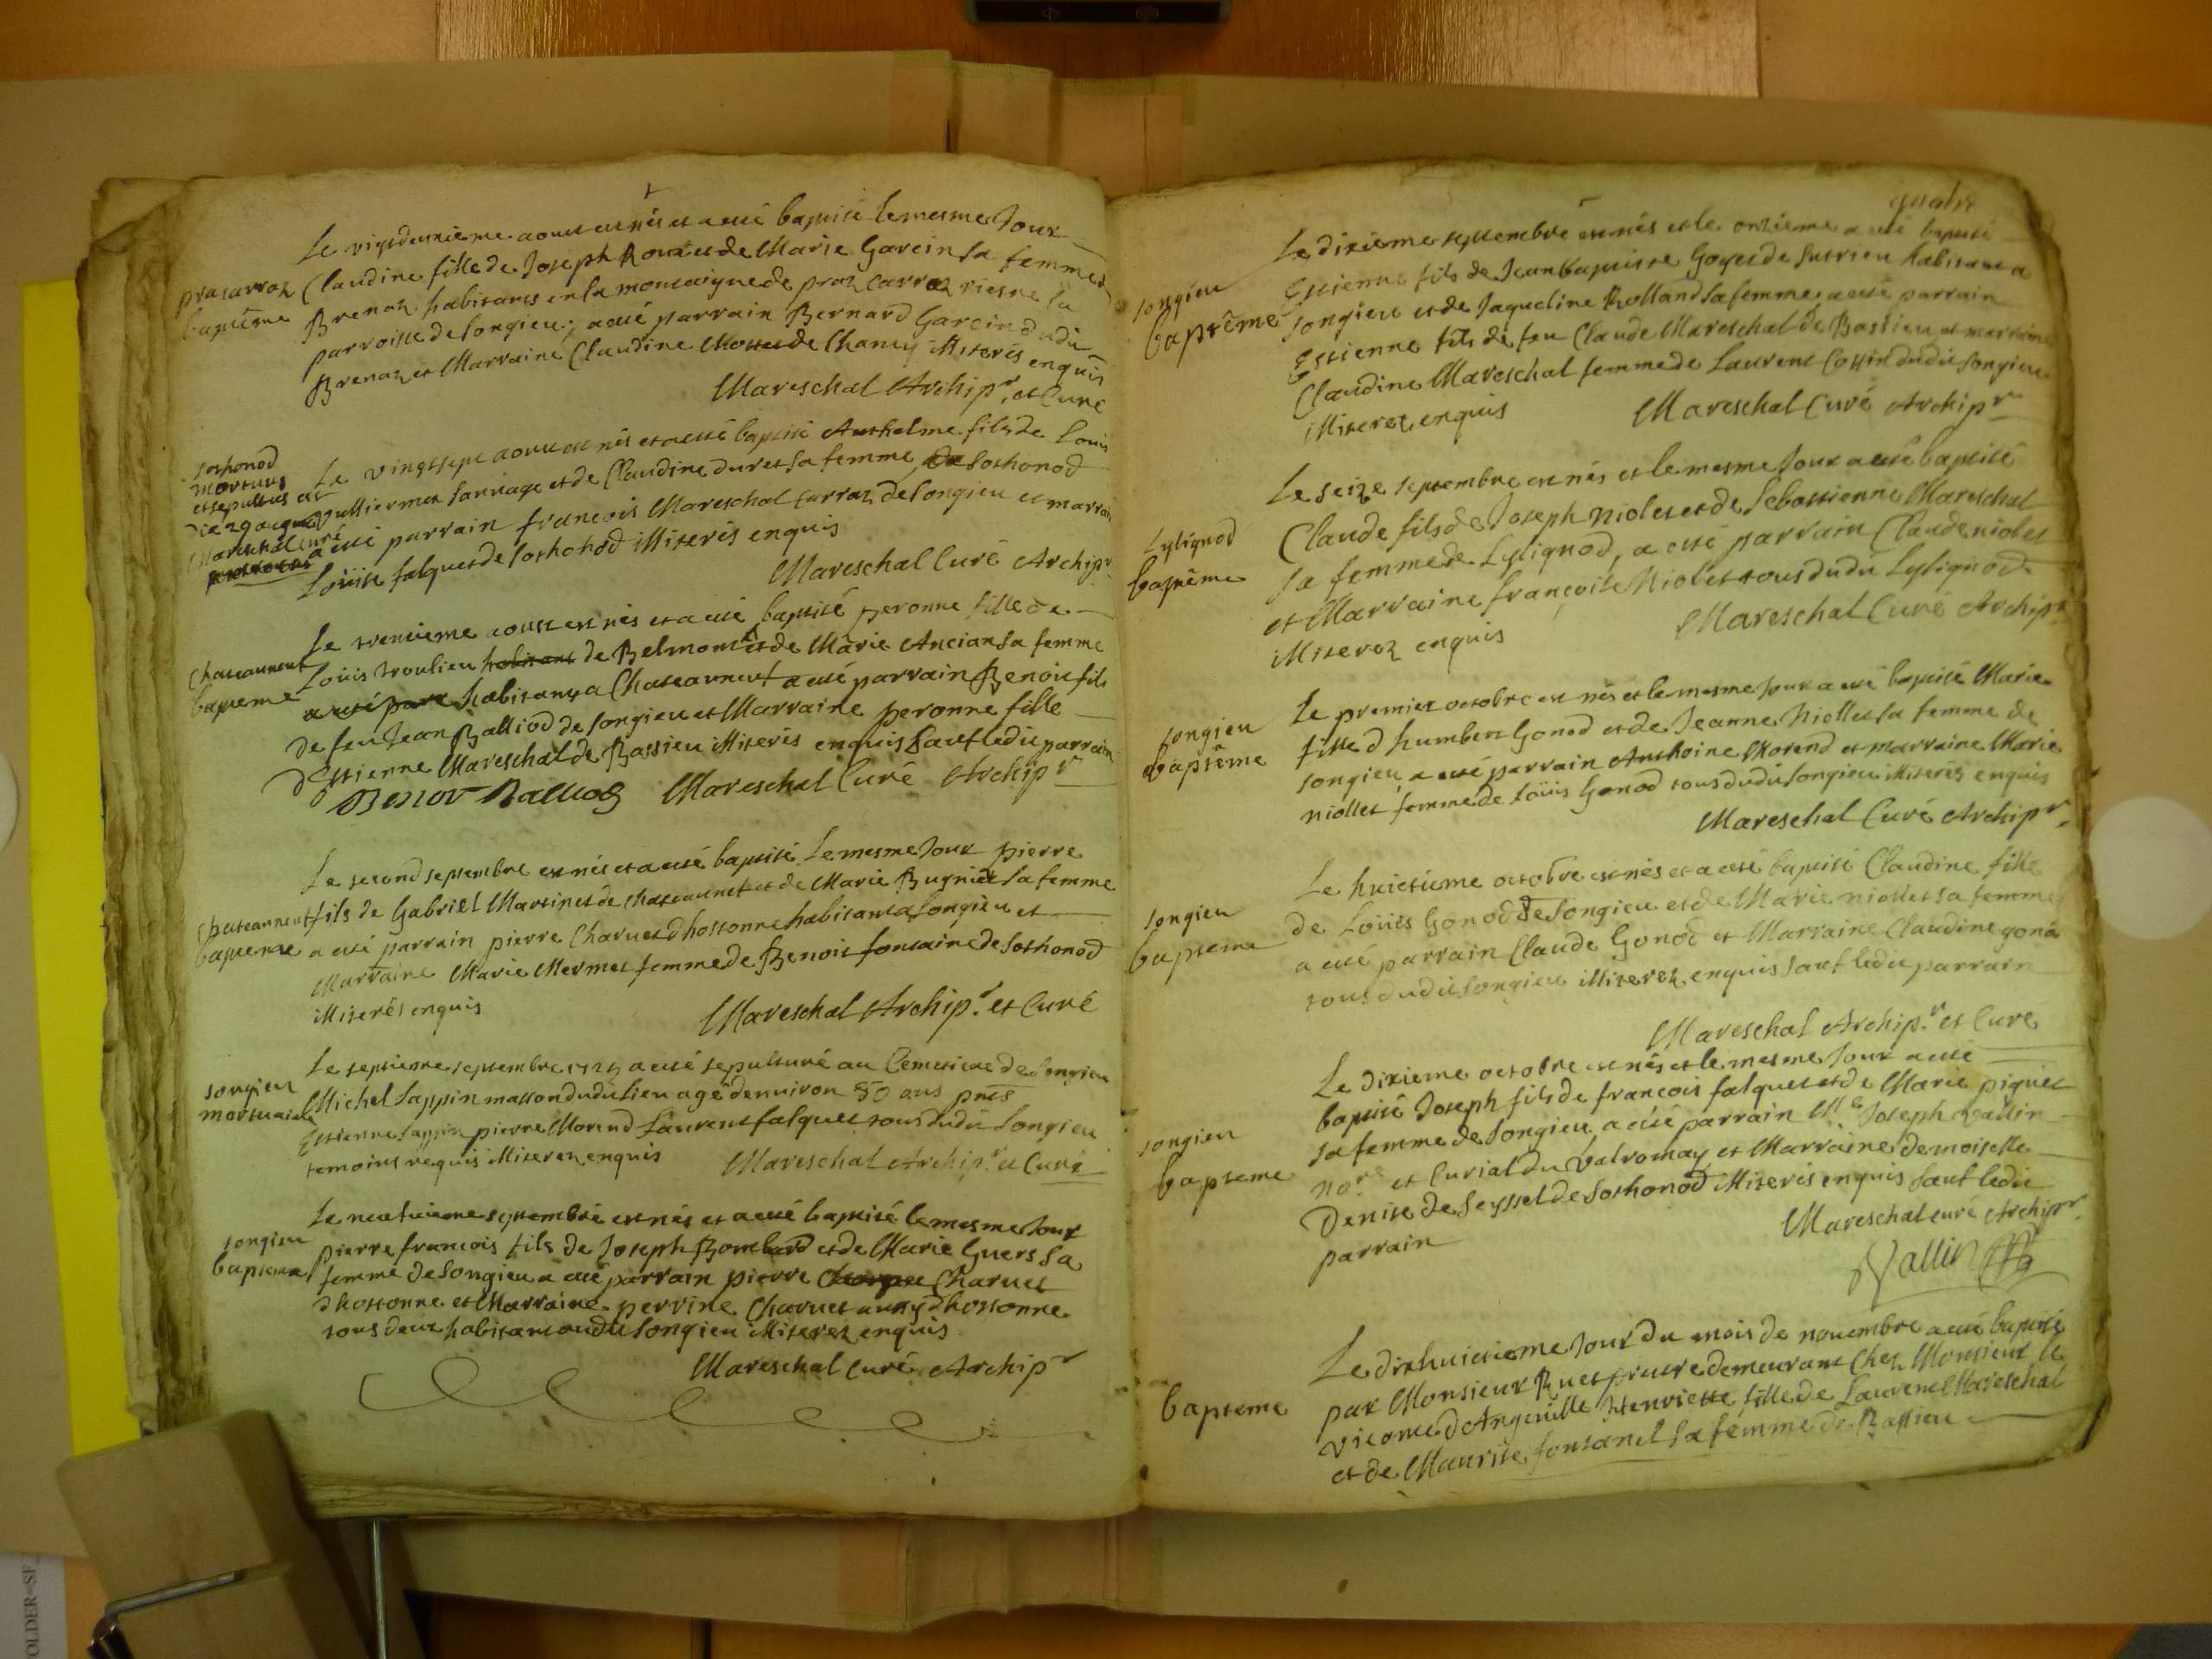 Le vingtdeuxieme aoust est nés et a eté baptisé le mesme Jour
prazarraz Claudine fille de Joseph Roux et de Marie Garein sa femme
baptême Brenaz habitants en la montaigne de praz Carraz riesre la
parroisse de Songieu, a eté parrain Bernard Garein dudit
Brenaz et Marraine Claudine de Chancy illiterés enquis
Mareschal Archip.r et Curé
sothonod
mortuus
et sepultus est
die 29 augusti
Mareschal curé
Le vingtsept aoust est nés et a eté baptisé Anthelme fils de Louis
Vulliermet Sauvage et de Claudine duret sa femme de Sothonod
a eté parrain francois Mareschal Carraz de Songieu et marraine
Loüise falquet de Sothonod illiterés enquis
Mareschal Curé Archip.r
Le trentieme aoust est nés et a eté baptisé peronne fille de
Chateauneuf Loüis troulieu habitant de Belmont et de Marie Ancian sa femme
bapteme a eté parr habitants a Chateauneuf a eté parrain Benoit fils
de feu Jean Balliod de Songieu et Marraine peronne fille
d'Estienne Mareschal de Bassieu illiterés enquis sauf ledit parrain
Benoit Balliod Mareschal Curé Archip.r
Le second septembre est nés et a eté baptisé Le mesme Jour pierre
Chateauneuf fils de Gabriel Martinet de Chateauneuf et de Marie Bugniet sa femme
bapteme a eté parrain pierre Charvet d'hottonne habitant a Songieu et
Marraine Marie Mermet femme de Benoit fontaine de Sothonod
illiterés enquis
Mareschal Archip.r et Curé
songieu
mortuaire
Le septieme septembre 1725 a eté sepulturé au Cemetiere de Songieu
Michel Sappin masson dudit lieu agé denviron 50 ans pnts
Estienne Sappin pierre Morend Laurent falquet tous dudit Songieu
temoins requis illiterez enquis Mareschal Archip.r et Curé
songieu
bapteme
Le neufvieme septembre est nés et a eté baptisé le mesme Jour
pierre francois fils de Joseph Bombard et de Marie Guers sa
femme de Songieu a eté parrain pierre Charvet
d'hottonne et Marraine perrine Charvet aussy d'hottonne
tous deux habitants audit Songieu illiterez enquis
Mareschal curé Archip.r
quatre
songieu
baptême
Le dixieme septembre est nés et le onzieme a eté baptisé
Estienne fils de Jean baptiste Goyet de Sutrieu habitant a
Songieu et de Jaqueline Rolland sa femme, a eté parrain
Estienne fils de feu Claude Mareschal de Bassieu et marraine
Claudine Mareschal femme de Laurent Cottin dudit Songieu
illiterez enquis Mareschal Curé Archip.r
Lylignod
baptême
Le seize septembre est nés et le mesme Jour a eté baptisé
Claude fils de Joseph niolet et de Sebastienne Mareschal
sa femme de Lylignod, a eté parrain Claude niolet
et Marraine françoise Niolet tous dudit Lylignod
illiterez enquis Mareschal Curé Archip.r
songieu
baptême
Le premier octobre est nés et le mesme Jour a eté baptisé Marie
fille d'humbert Gonod et de Jeanne Niollet sa femme de
songieu, a eté parrain Anthoine Morend et marraine Marie
niollet femme de Loüis Gonod tous dudit Songieu illiterés enquis
Mareschal Curé Archip.r
songieu
bapteme
Le huictieme octobre est nés et a eté baptisé Claudine fille
de Loüis Gonod de Songieu et de Marie niollet sa femme
a eté parrain Claude Gonod et Marraine Claudine gonod
tous dudit Songieu illiterez enquis sauf ledit parrain
Mareschal Archip.r et Curé
songieu
bapteme
Le dixieme octobre est nés et le mesme Jour a eté
baptisé Joseph fils de francois falquet et de Marie piquet
sa femme de Songieu, a eté parrain M.e Joseph Vallin
no.re et Curial du Valromay et Marraine demoiselle
Denise de Seyssel de Sothonod illiterés enquis sauf ledit
parrain Mareschal curé Archip.r
Vallin
bapteme
Le dixhuictieme Jour du mois de novembre a eté baptisé
par Monsieur Ruet pretre demeurant Chez Monsieur le
vicomte d'Angeville Henriette fille de Laurent Mareschal
et de Maurise fontanel sa femme de Bassieu